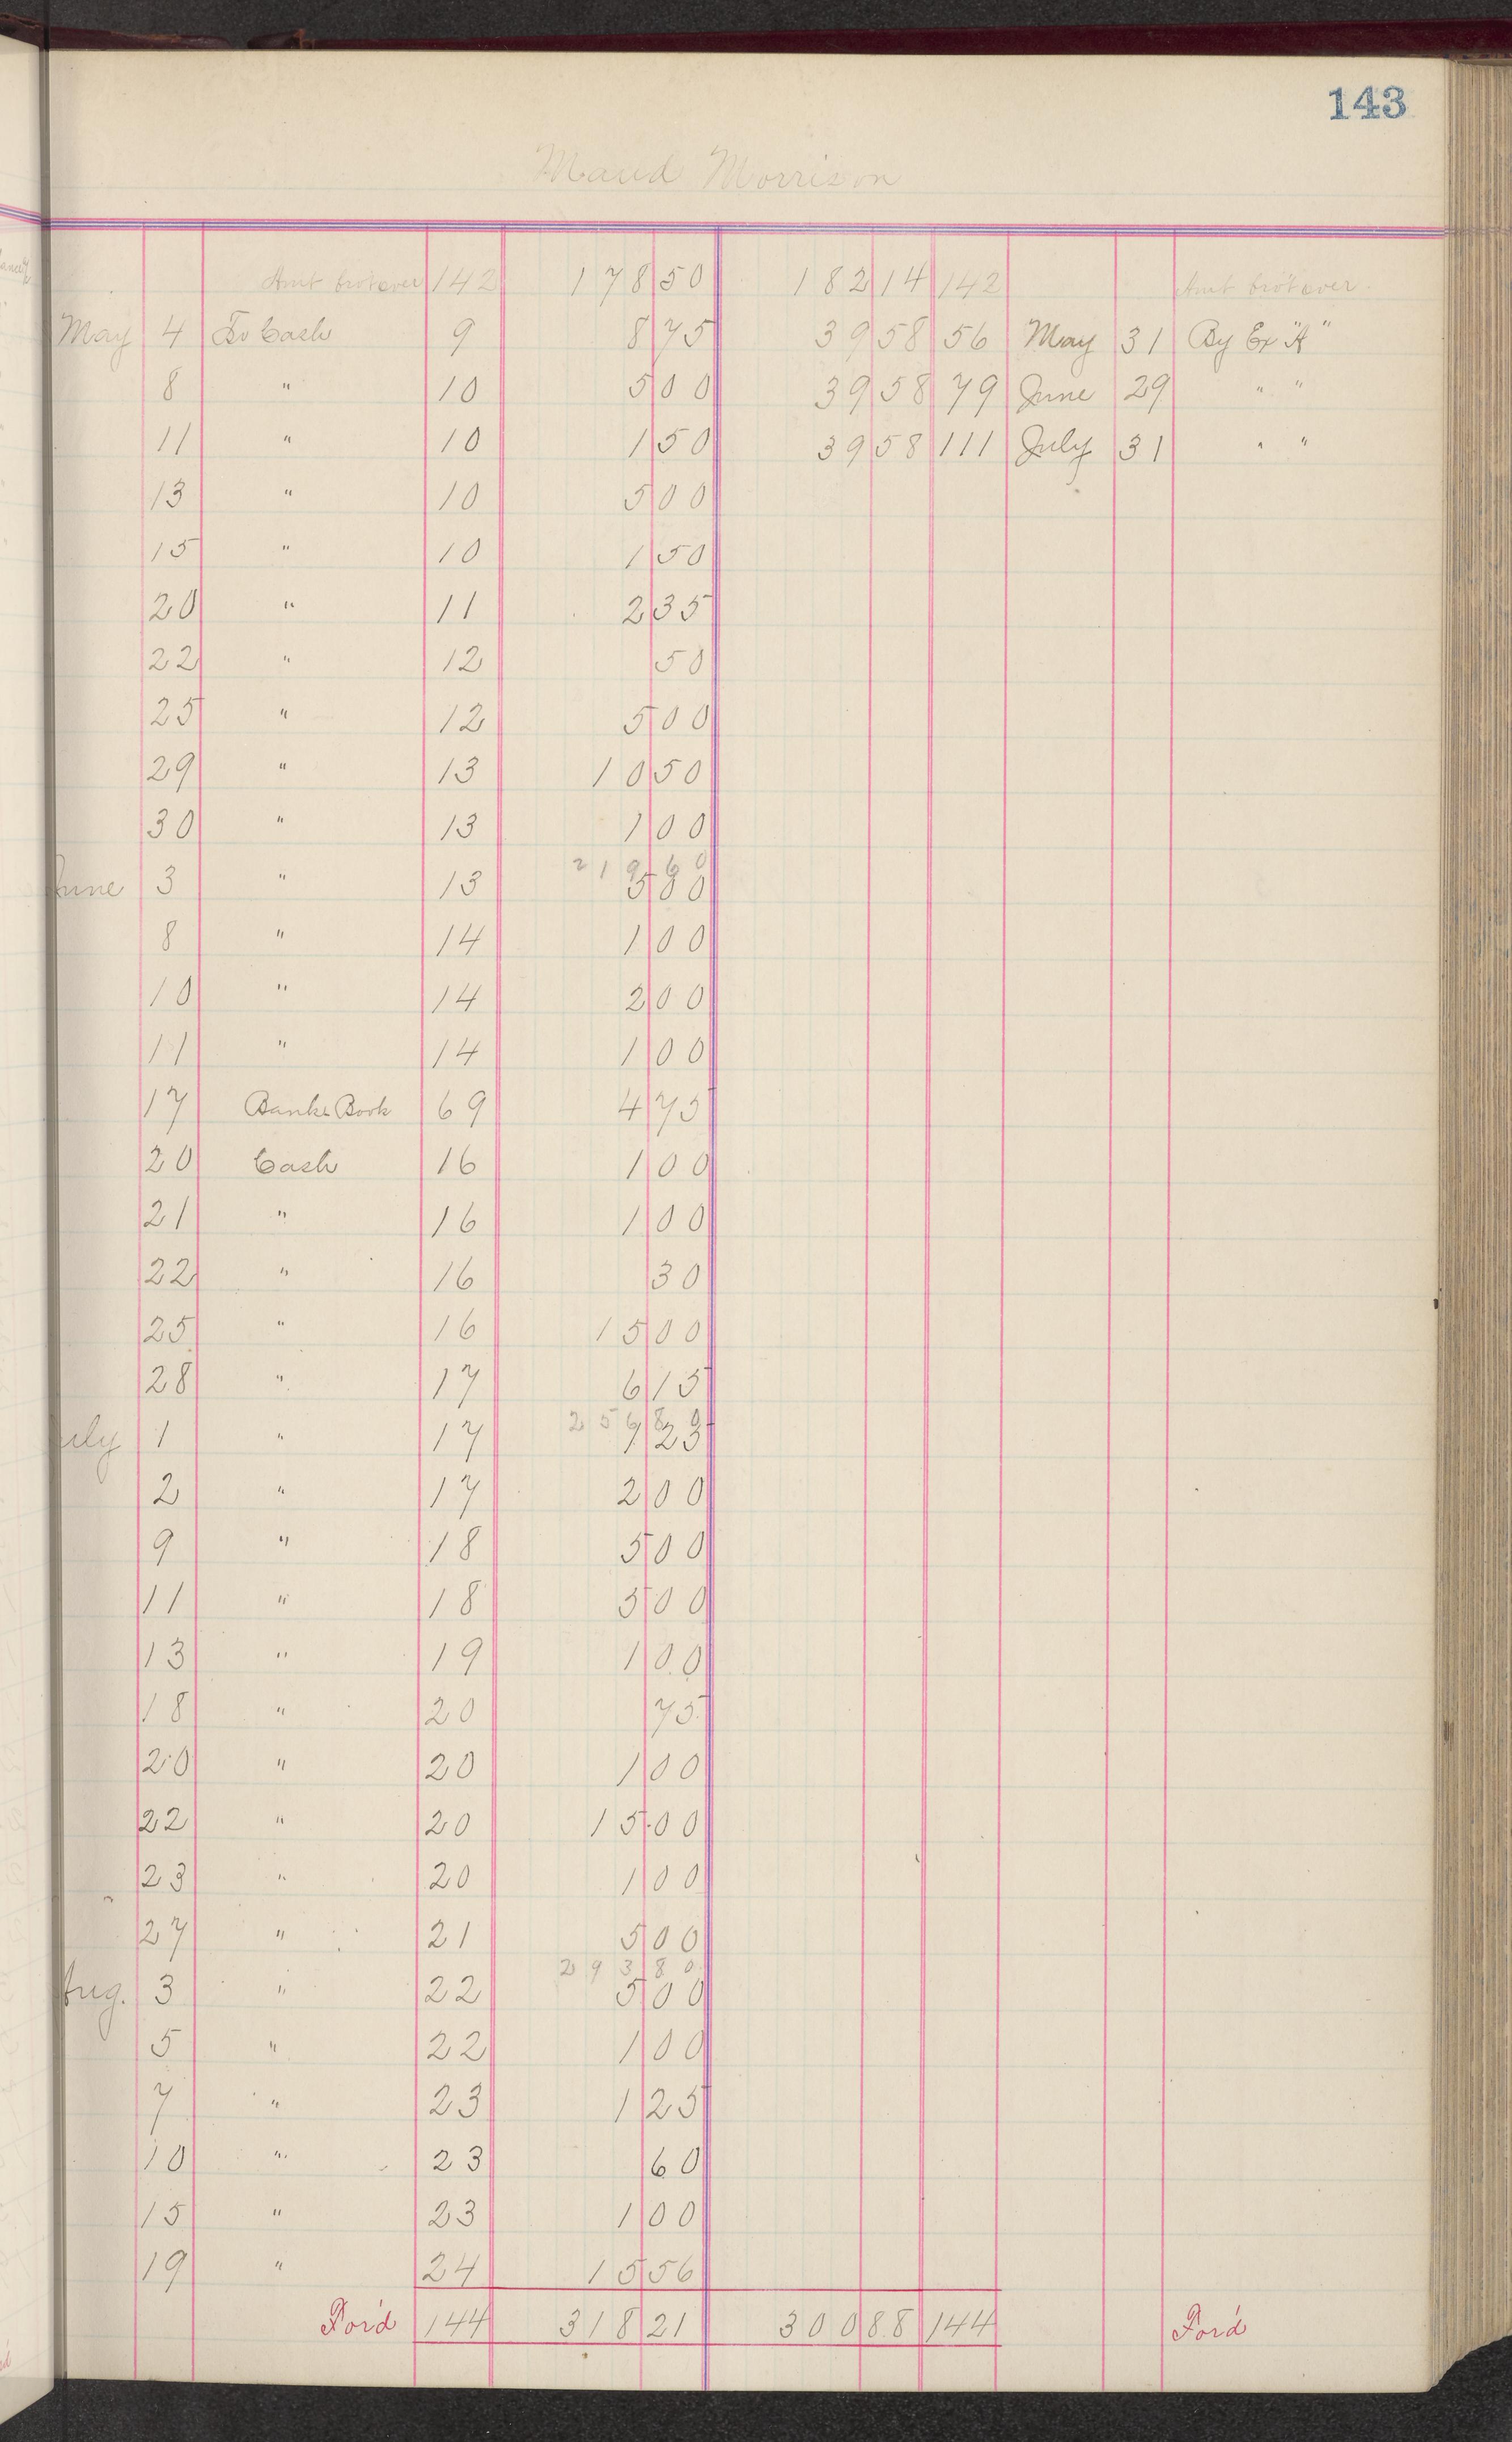 143
Maud Morrison
Amt brot over 142 178 50 182 14 142 Amt brot over.
May 4 To Cash 9 8 75 39 58 56 May 31 By Ex "A"
8 " 10 5 00 39 58 79 June 29 " "
11 " 10 1 50 39 58 111 July 31 " "
13 " 10 5 00
15 " 10 1 50
20 " 11 2 35
22 " 12 50
25 " 12 5 00
29 " 13 10 50
30 " 13 1 00
219 60
June 3 " 13 5 00
8 " 14 1 00
10 " 14 2 00
11 " 14 1 00
17 Banks Book 69 4 75
20 Cash 16 1 00
21 " 16 1 00
22 " 16 30
25 " 16 15 00
28 " 17 6 15
256 80
July 1 " 17 1 25
2 " 17 2 00
9 " 18 5 00
11 " 18 5 00
13 " 19 1 00
18 " 20 75
20 " 20 1 00
22 " 20 15 00
23 " 20 1 00
27 " 21 5 00
293 80
Aug. 3 " 22 5 00
5 " 22 1 00
7 " 23 1 25
10 " 23 60
15 " 23 1 00
19 " 24 15 56
For'd 144 318 21 300 88 144 For'd